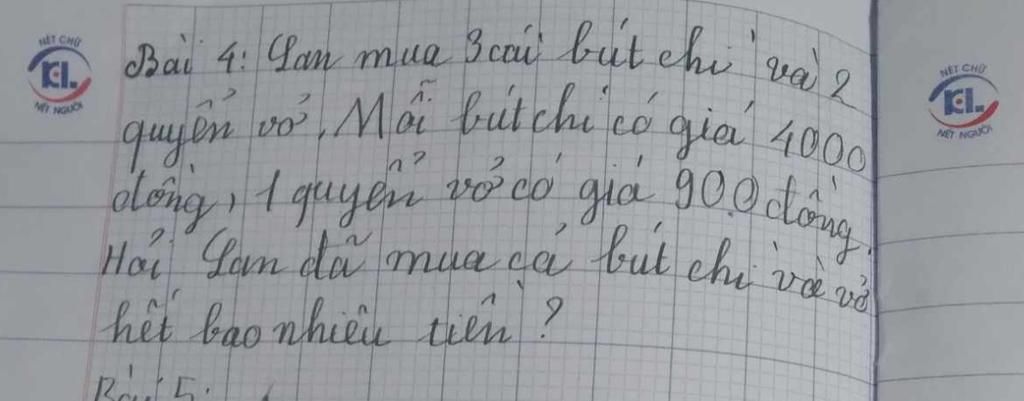 NÉT CHỮ
KL.
NẾT NGƯỜI
NÉT CHỮ
KL.
NẾT NGƯỜI
Bài 4: Lan mua 3 cái bút chì và 2
quyển vở. Mỗi bút chì có giá 4000
đồng, 1 quyển vở có giá 900 đồng.
Hỏi Lan đã mua cả bút chì và vở
hết bao nhiêu tiền?
Bài 5: